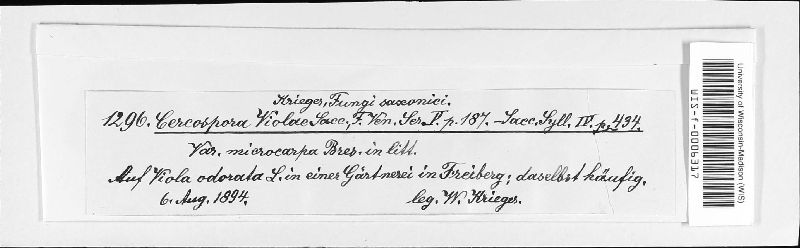 Krieger, Fungi saxonici.
1296. Cercospora Violae Sacc., F. Ven. Ser. V. p. 187. – Sacc. Syll. IV. p. 434.
Var. microcarpa Bres. in litt.
Auf Viola odorata L. in einer Gärtnerei in Freiberg; daselbst häufig.
6. Aug. 1894. leg. W. Krieger.
University of Wisconsin-Madison (WIS)
WIS-f-0006317